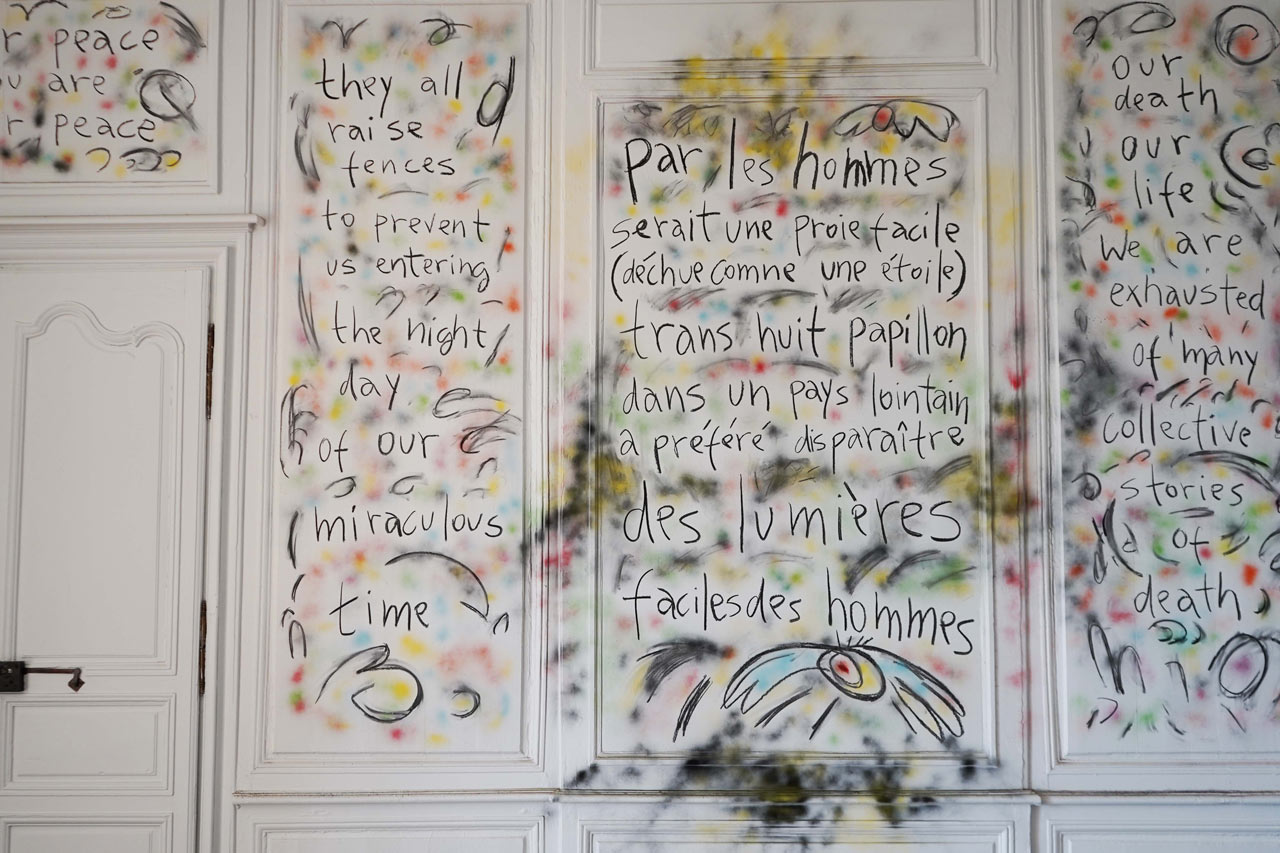 r peace
u are
r peace
they all
raise
fences
to prevent
us entering
the night
day
of our
miraculous
time
par les hommes
serait une proie facile
(déchue comne une étoile)
trans huit papillon
dans un pays lointain
a préféré disparaître
des lumières
faciles des hommes
our
death
our
life
we are
exhausted
of many
collective
stories
of
death